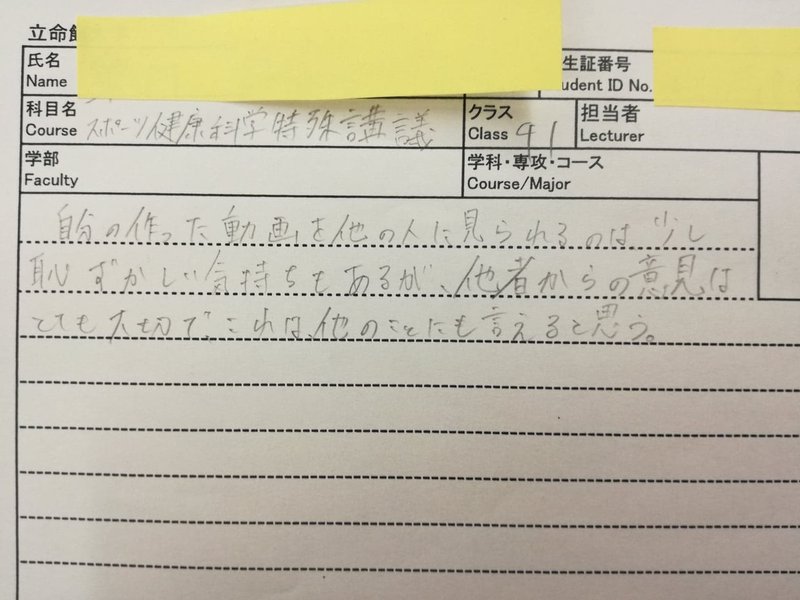 立命館
氏名
Name
生証番号
tudent ID No.
科目名
Course スポーツ健康科学特殊講議
クラス
Class 91
担当者
Lecturer
学部
Faculty
学科・専攻・コース
Course/Major
自分の作った動画を他の人に見られるのは、少し
恥ずかしい気持ちもあるが、他者からの意見は
とても大切で、これは、他のことにも言えると思う。